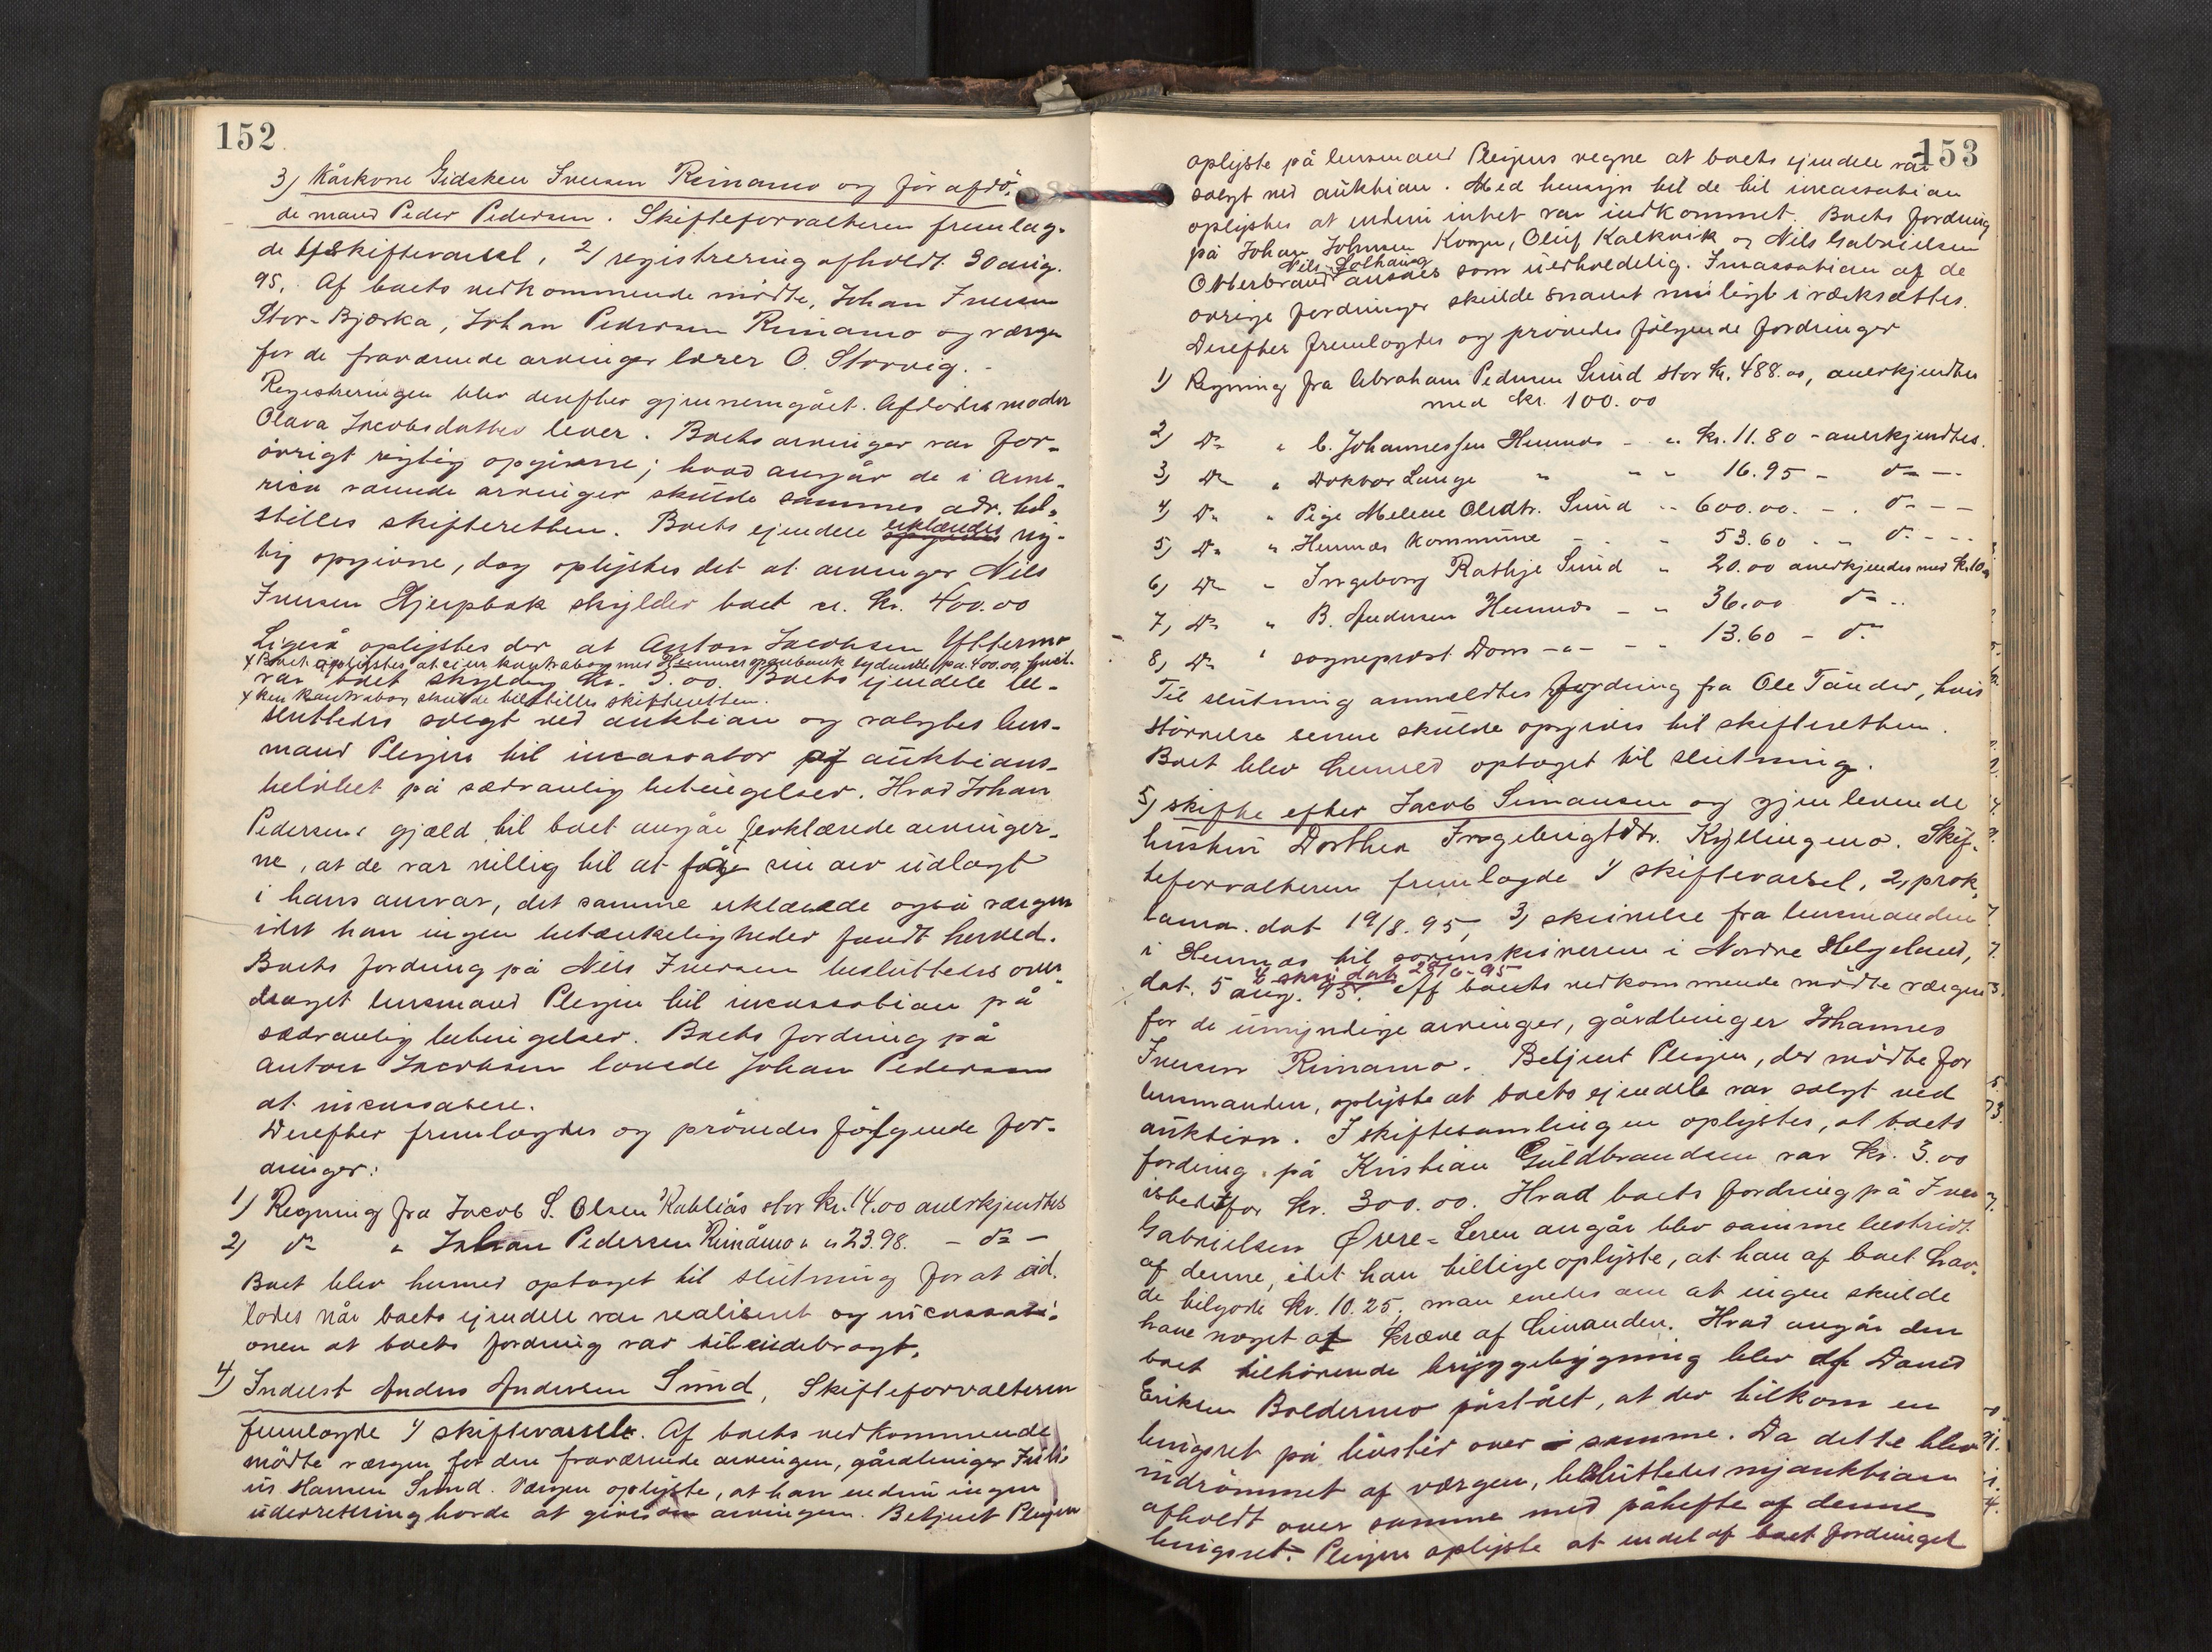 152
3) Kårkone Gidsken Iversen Reinamo og før afdö-
de mand Peder Pedersen. Skifteforvalteren fremlag-
de 1) skiftevarsel, 2) registrering afholdt 30 aug.
95. Af boets vedkommende mödte, Johan Iversen
Stor-Bjærka, Johan Pedersen Reinamo og værgen
for de fraværende arvinger lærer O. Storvig.
Registreringen blev derefter gjennemgået. Afdödes moder
Olava Jacobsdatter lever. Boets arvinger var for-
övrigt rigtig opgivne; hvad angår de i Ame-
rica værende arvinger skulde sammes adr. til-
stilles skifteretten. Boets ejendele erklæredes rig-
tig opgivne, dog oplystes det at arvinger Nils
Iversen Hjerpbak skylder boet ca. kr. 400.00
Ligeså oplystes der at Anton Jacobsen Yttermo
x Boet oplystes at eie en kontrabog med Hemnes sparebank lydende på 400.00, hvil-
var boet skyldig kr. 3.00. Boets ejendele be-
x ken kontrabog skulde tilstilles skifteretten.
sluttedes solgt ved auktion og valgtes lens-
mand Plejen til incassator af auktions-
belöbet på sædvanlig betingelser. Hvad Johan
Pedersens gjæld til boet angår erklærede arvinger-
ne, at de var villig til at få sin arv udlagt
i hans ansvar, det samme erklærede også værgen
idet han ingen betænkeligheder fandt herved.
Boets fordring på Nils Iversen besluttedes over-
draget lensmand Plejen til incassation på
sædvanlig betingelser. Boets fordring på
Anton Jacobsen lovede Johan Pedersen
at incassere.
Derefter fremlagdes og prövedes fölgende for-
dringer:
1) Regning fra Jacob S. Olsen Kobliås stor kr. 14.00 anerkjendtes
2) do " Johan Pedersen Reinåmo " " 23.98. - do -
Boet blev hermed optaget til slutning for at ud-
lodes når boets ejendele var realiseret og incassati-
onen at boets fordring var tilendebragt.
4) Inderst Anders Andersen Sund, Skifteforvalteren
fremlagde 1) skiftevarsel. Af boets vedkommende
mödte værgen for den fraværende arvingen, gårdbruger Juli-
us Hansen Sund. Værgen oplyste, at han endnu ingen
underretning havde at give om arvingen. Betjent Plejen
153
oplyste på lensmand Plejens vegne at boets ejendele var
solgt ved auktion. Med hensyn til de til incassation
oplystes at endnu intet var indkommet. Boets fordring
på Johan Johnsen Kongs, Oluf Kalkvik og Nils Gabrielsen
Nils Solhaug
Otterbrand ansåes som uerholdelig. Incassation af de
övrige fordringer skulde snarest muligt iværksættes.
Derefter fremlagdes og prövedes fölgende fordringer
1) Regning fra Abraham Pedersen Sund stor kr. 488.00, anerkjendtes
med kr. 100.00
2) Do " C. Johannessen Hemnes - " kr. 11.80 - anerkjendtes.
3) Do " Doktor Lange " - " 16.95 - do -
4) Do " Pige Melene Olsdtr. Sund - - 600.00. - . do - -
5) Do " Hemnes Kommune - . - 53.60 . - do - - -
6) Do " Ingeborg Rathje Sund " 20.00 anerkjendes med kr. 10.00
7) Do " B. Andersen Hemnes - " 36.00 do - .
8) Do " sogneprest Dons - " - - 13.60 - do
Til slutning anmeldtes fordring fra Ole Tånder, hvis
störrelse senere skulde opgives til skifteretten.
Boet blev hermed optaget til slutning.
5) skifte efter Jacob Simonsen og gjenlevende
hustru Dorthea Ingebrigtdtr. Kyllingmo. Skif-
teforvalteren fremlagde 1) skiftevarsel, 2) prok-
lama. dat 19/8. 95, 3) skrivelse fra lensmanden
i Hemnes til sorenskriveren i Nordre Helgeland,
4 skriv dat 28/6-95
dat. 5 aug. 95. Af boets vedkommende mödte værgen
for de umyndige arvinger, gårdbruger Johannes
Iversen Reinamo. Betjent Plejen, der mödte for
lensmanden, oplyste at boets ejendele var solgt ved
auktion. I skiftesamlingen oplystes, at boets
fordring på Kristian Guldbrandsen var kr. 3.00
istedetfor kr. 300.00. Hvad boets fordring på Iver
Gabrielsen Øvre-Leren angår blev samme bestridt
af denne, idet han tillige oplyste, at han af boet hav-
de tilgode kr. 10.25; man enedes om at ingen skulde
have noget at kræve af hinanden. Hvad angår den
boet tilhörende bryggebygning blev af David
Eriksen Boldermo påstået, at der tilkom en
brugsret på livstid over samme. Da dette blev
indrömmet af værgen, besluttedes ny auktion
afholdt over samme med påhefte af denne
brugsret. Plejen oplyste at endel af boet fordringer